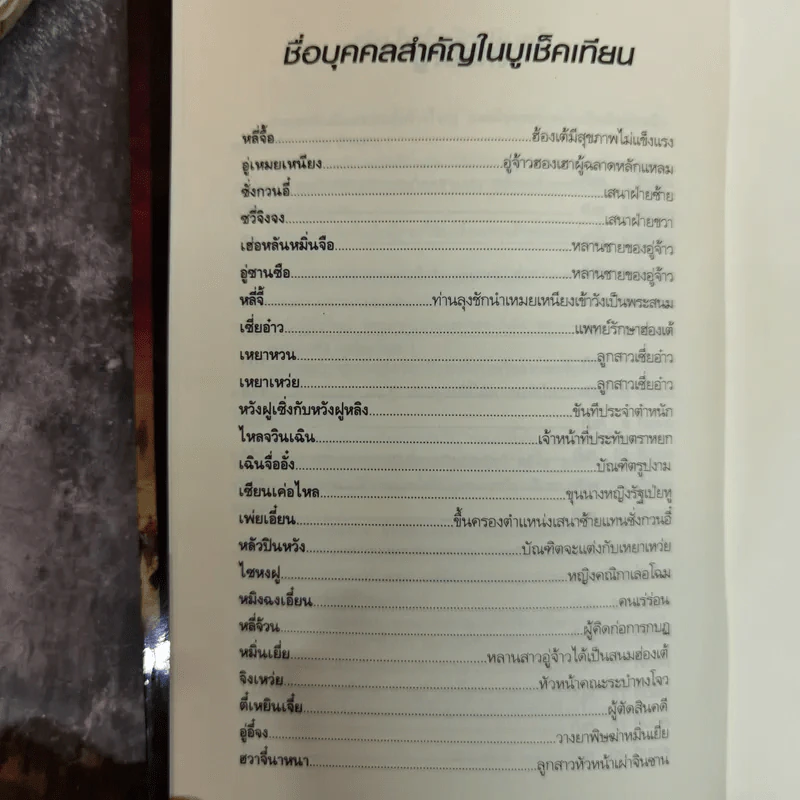 ชื่อบุคคลสำคัญในบูเช็คเทียน
หลี่จื้อ..........ฮ้องเต้มีสุขภาพไม่แข็งแรง
อู่เหมยเหนียง..........อู่จ้าวฮองเฮาผู้ฉลาดหลักแหลม
ซั่งกวนอี๋..........เสนาฝ่ายซ้าย
ซวี่จิงจง..........เสนาฝ่ายขวา
เฮ่อหลันหมิ่นจือ..........หลานชายของอู่จ้าว
อู่ซานซือ..........หลานชายของอู่จ้าว
หลี่จี้..........ท่านลุงชักนำเหมยเหนียงเข้าวังเป็นพระสนม
เซี่ยอ๋าว..........แพทย์รักษาฮ่องเต้
เหยาหวน..........ลูกสาวเซี่ยอ๋าว
เหยาเหว่ย..........ลูกสาวเซี่ยอ๋าว
หวังฝูเซิ่งกับหวังฝูหลิง..........ขันทีประจำตำหนัก
ไหลจวินเฉิน..........เจ้าหน้าที่ประทับตราหยก
เฉินจื่ออั๋ง..........บัณฑิตรูปงาม
เซียนเค่อไหล..........ขุนนางหญิงรัฐเป่ยทู
เพ่ยเอี๋ยน..........ขึ้นครองตำแหน่งเสนาซ้ายแทนซั่งกวนอี๋
หลัวปินหวัง..........บัณฑิตจะแต่งกับเหยาเหว่ย
ไซหงฝู..........หญิงคณิกาเลอโฉม
หมิงฉงเอี่ยน..........คนเร่ร่อน
หลี่จ้วน..........ผู้คิดก่อการกบฏ
หมิ่นเยี่ย..........หลานสาวอู่จ้าวได้เป็นสนมฮ่องเต้
จิงเหว่ย..........หัวหน้าคณะระบำทงโจว
ตี๋เหยินเจี๋ย..........ผู้ตัดสินคดี
อู่อี้จง..........วางยาพิษฆ่าหมิ่นเยี่ย
ฮวาจี่นาหนา..........ลูกสาวหัวหน้าเผ่าจินซาน